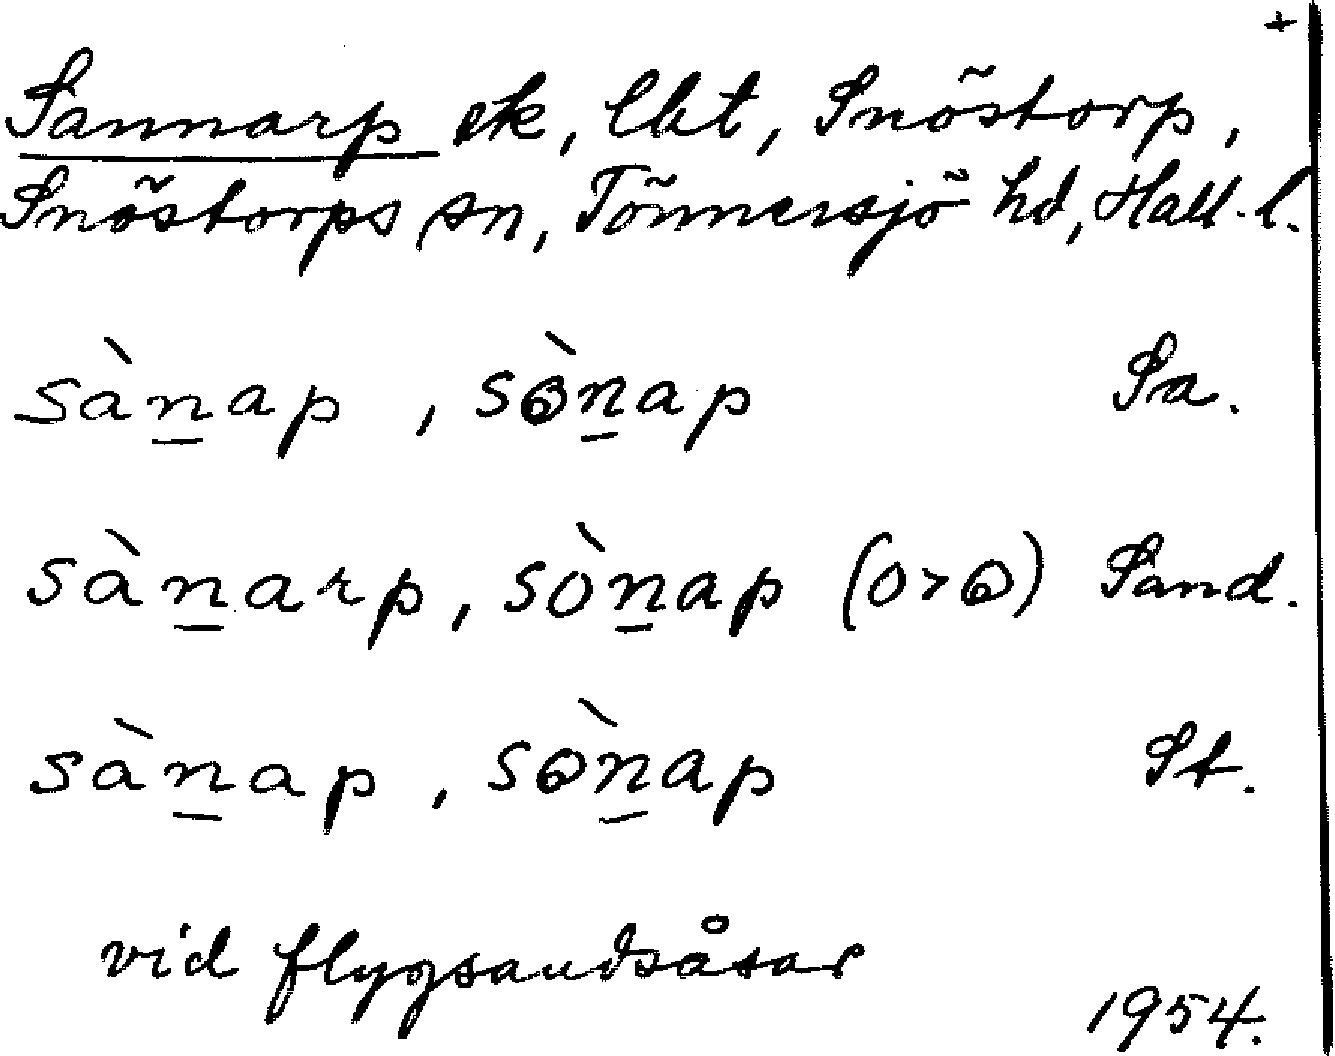 +
Sannarp ek, lht, Snöstorp,
Snöstorps sn, Tönnersjö hd, Hall. l.
sàn̲ap, sɷ̀n̲ap Sa.
sàn̲arp, sòn̲ap (o>ɷ) Sand.
sàn̲ap, sɷ̀n̲ap St.
vid flygsandsåsar
1954.